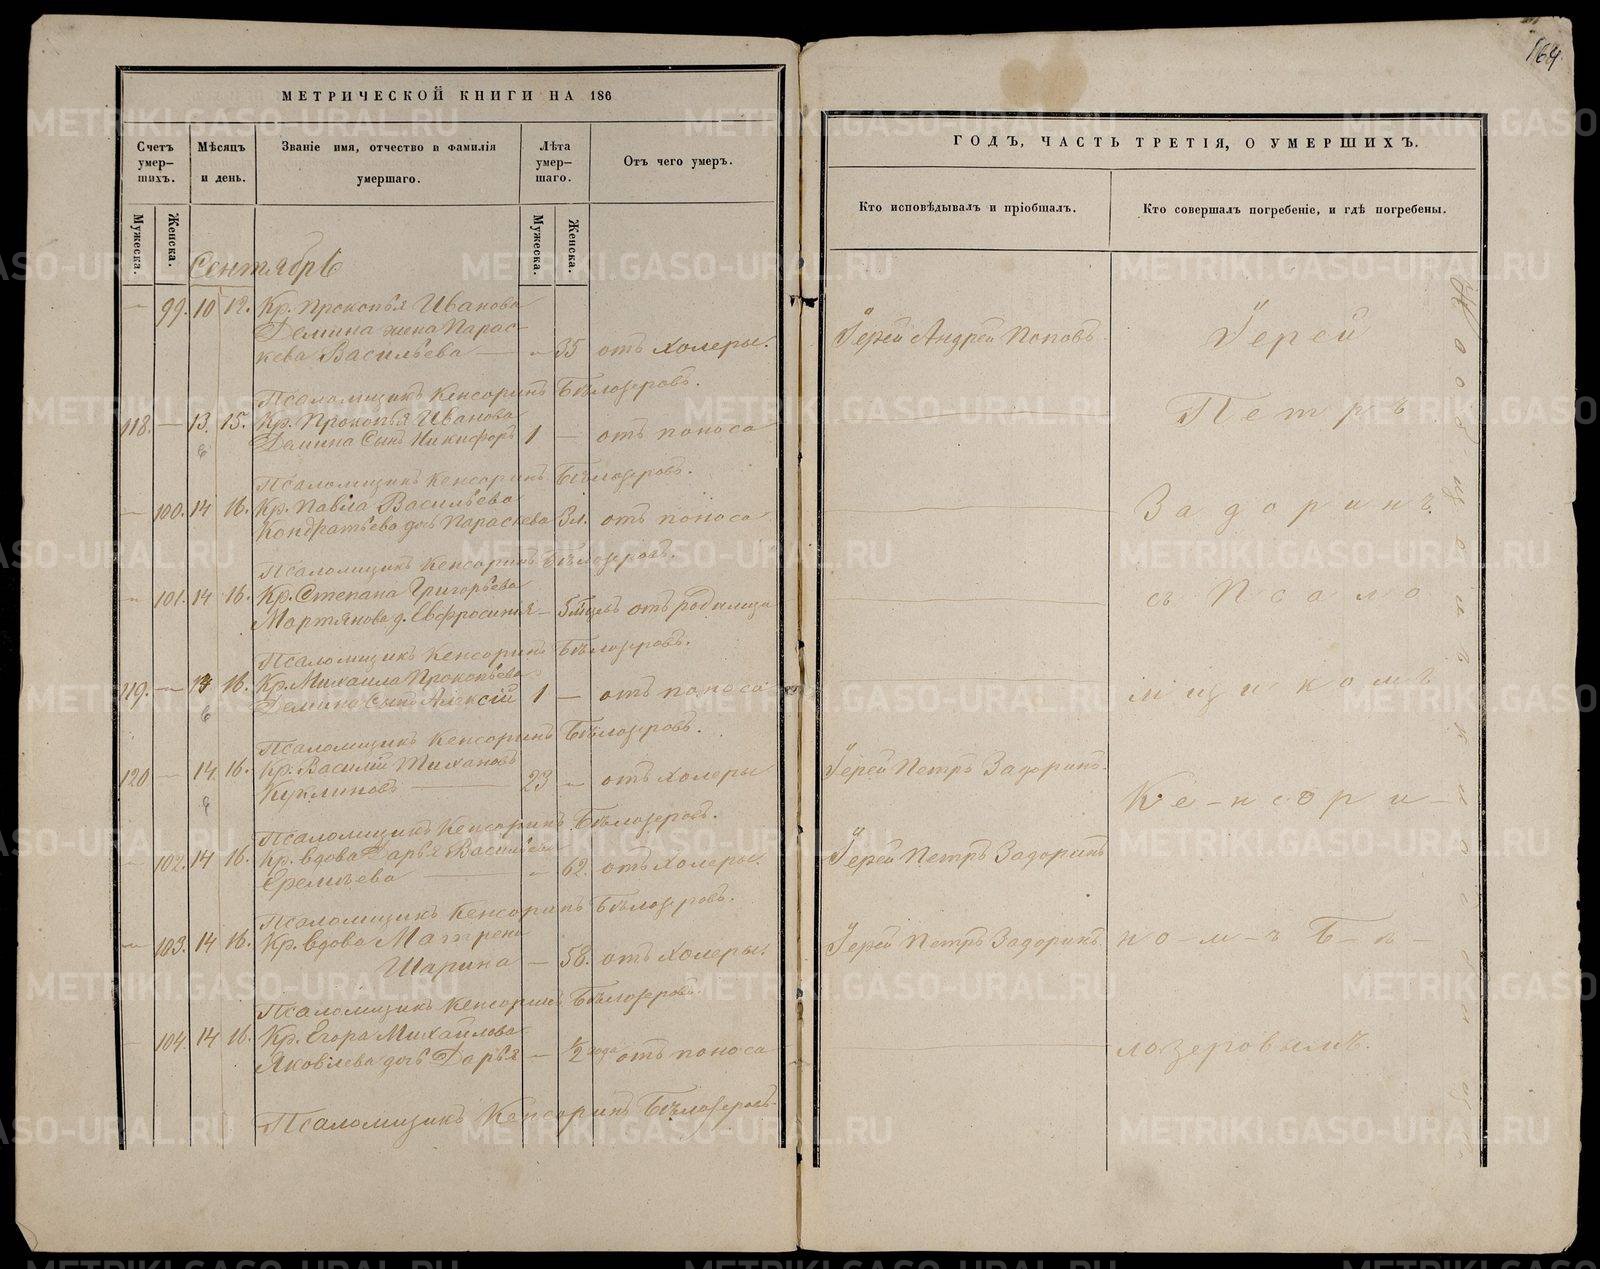 164
МЕТРИЧЕСКОЙ КНИГИ НА 186
Счетъ умер-шихъ.
Мѣсяцъ и день.
Званіе имя, отчество и фамилія умершаго.
Лѣта умер-шаго.
Отъ чего умеръ.
Мужеска.
Женска.
Мужеска.
Женска.
Сентябрь
— 99. 10 12. Кр. Прокопья Иванова
Демина жена Парас-
кева Васильева — 35 отъ холеры.
Псаломщикъ Кенсоринъ Бѣлозеровъ.
118. — 13. 15. Кр. Прокопья Иванова
Демина Сынъ Никифоръ 1 — отъ поноса
Псаломщикъ Кенсоринъ Бѣлозеровъ.
— 100. 14 16. Кр. Павла Васильева
Кондратьева дочь Параскева 3 л. отъ поноса
Псаломщикъ Кенсоринъ Бѣлозеровъ.
— 101. 14 16. Кр. Степана Григорьева
Мартянова д. Евфросинія — 5 отъ родимца
Псаломщикъ Кенсоринъ Бѣлозеровъ.
119. — 14 16. Кр. Михаила Прокопьева
Демина Сынъ Алексій 1 — отъ поноса
Псаломщикъ Кенсоринъ Бѣлозеровъ.
120 — 14 16. Кр. Василій Тихановъ
Куклиновъ — 23 — отъ холеры
Псаломщикъ Кенсоринъ Бѣлозеровъ.
— 102. 14 16. Кр. вдова Дарья Васильева
Еремѣева — 62. отъ холеры.
Псаломщикъ Кенсоринъ Бѣлозеровъ.
— 103. 14 16. Кр. вдова Матрена
Шарина — 58. отъ холеры.
Псаломщикъ Кенсоринъ Бѣлозеровъ.
— 104. 14 16. Кр. Егора Михайлова
Яковлева дочь Дарья — 1/2 года отъ поноса
Псаломщикъ Кенсоринъ Бѣлозеровъ.
ГОДЪ, ЧАСТЬ ТРЕТІЯ, О УМЕРШИХЪ.
Кто исповѣдывалъ и пріобщалъ.
Кто совершалъ погребеніе, и гдѣ погребены.
Іерей Андрей Поповъ.
Іерей Петръ Задоринъ.
Іерей Петръ Задоринъ
Іерей Петръ Задоринъ.
Іерей
Петръ
Задоринъ
съ Псало
мщикомъ
Ке-нсори-
но-м-ъ Б-ѣ-
лозеровымъ.
METRIKI.GASO-URAL.RU